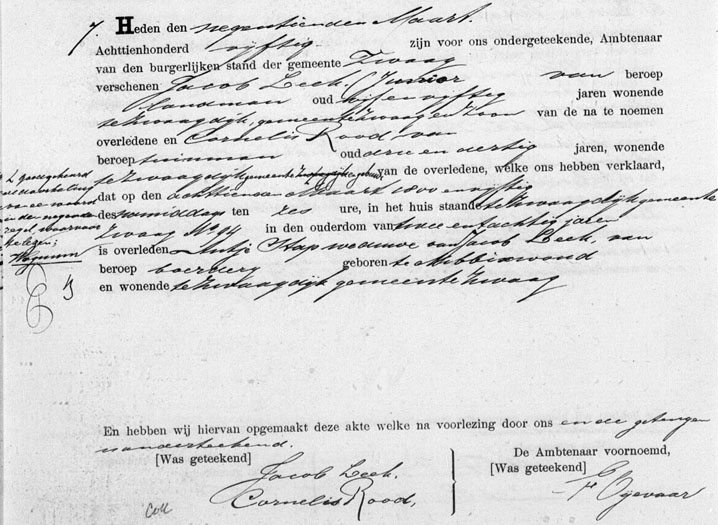 7. Heden den negentienden Maart
Achttienhonderd vijftig zijn voor ons ondergeteekende, Ambtenaar
van den burgerlijken stand der gemeente Zwaag
verschenen Jacob Leek, Junior van beroep
landman oud vijf en vijftig jaren wonende
te Zwaagdijk, gemeente Zwaag en Zoon van de na te noemen
overledene en Cornelis Rood van
beroep tuinman oud drie en dertig jaren, wonende
te Zwaagdijk gemeente Zwaag van de overledene, welke ons hebben verklaard,
dat op den achttienden Maart 1800 en vijftig
des voormiddags ten zes ure, in het huis staande te Zwaagdijk gemeente
Zwaag No 94 in den ouderdom van twee en tachtig jaren
is overleden Antje Stap weduwe van Jacob Leek, van
beroep boerderij geboren te Nibbixwoud
en wonende te Zwaagdijk gemeente Zwaag
goedgekeurd
in de negende
regel
te lezen;
En hebben wij hiervan opgemaakt deze akte welke na voorlezing door ons en de getuigen
is onderteekend.
[Was geteekend]
Jacob Leek.
Cornelis Rood,
De Ambtenaar voornoemd,
[Was geteekend]
Coll